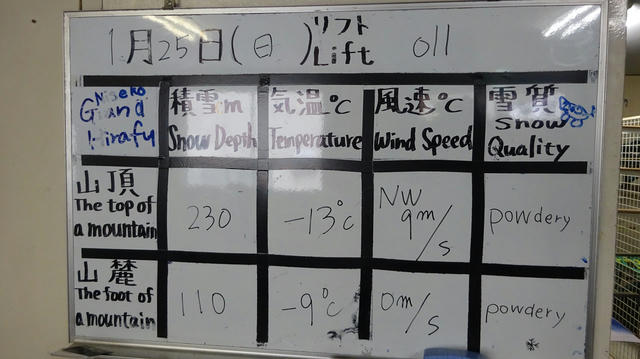 1月25日(日) リフト Lift all
Niseko Grand Hirafu
積雪cm Snow Depth
気温℃ Temperature
風速℃ Wind Speed
雪質 Snow Quality
山頂 The top of a mountain
230
-13℃
NW 9m/s
powdery
山麓 The foot of a mountain
110
-9℃
0m/s
powdery